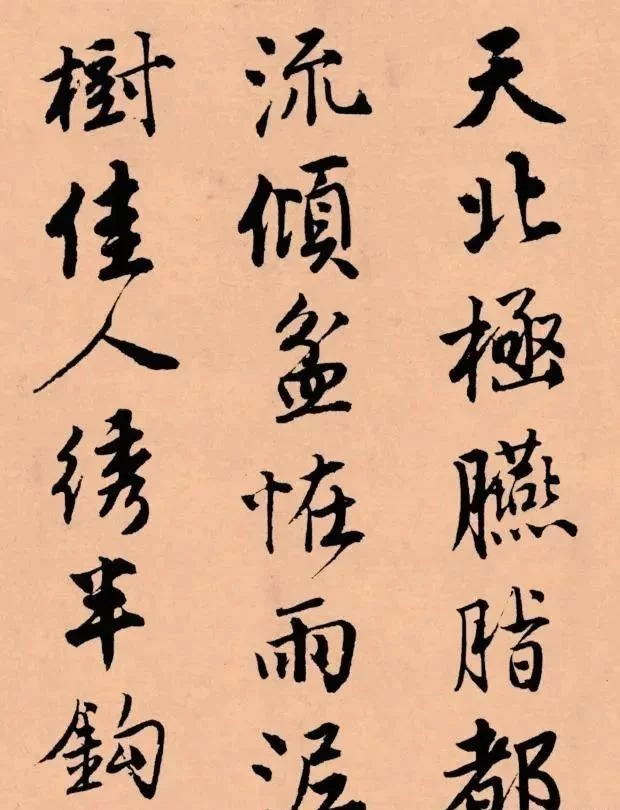 天北極臙脂都
流傾盆恠雨泥
樹佳人綉半鈎